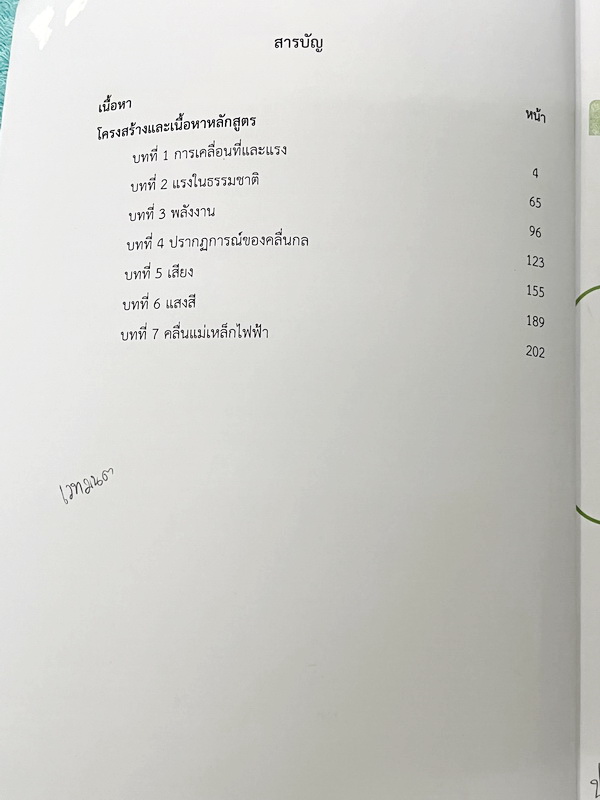 สารบัญ
เนื้อหา หน้า
โครงสร้างและเนื้อหาหลักสูตร
บทที่ 1 การเคลื่อนที่และแรง 4
บทที่ 2 แรงในธรรมชาติ 65
บทที่ 3 พลังงาน 96
บทที่ 4 ปรากฏการณ์ของคลื่นกล 123
บทที่ 5 เสียง 155
บทที่ 6 แสงสี 189
บทที่ 7 คลื่นแม่เหล็กไฟฟ้า 202